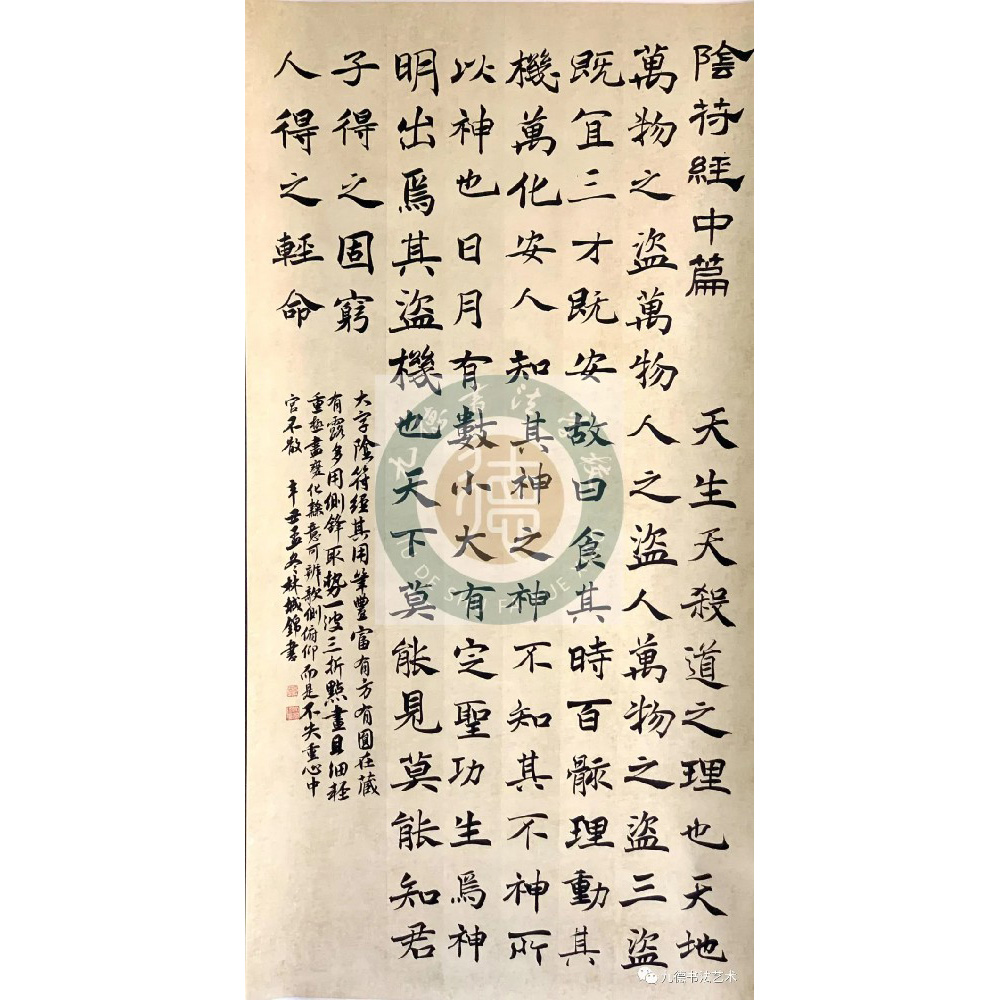 陰符經中篇 天生天殺道之理也天地
萬物之盜萬物人之盜人萬物之盜三盜
既宜三才既安故曰食其時百骸理動其
機萬化安人知其神之神不知其不神所
以神也日月有數小大有定聖功生焉神
明出焉其盜機也天下莫能見莫能知君
子得之固窮
人得之輕命
大字陰符經其用筆豐富有方有圓在藏
有露多用側鋒取勢一波三折點畫且細輕
重盡變化隸意可辨欹側俯仰而是不失重心中
宮不散 辛丑孟冬林錦書
德
九德书法艺术